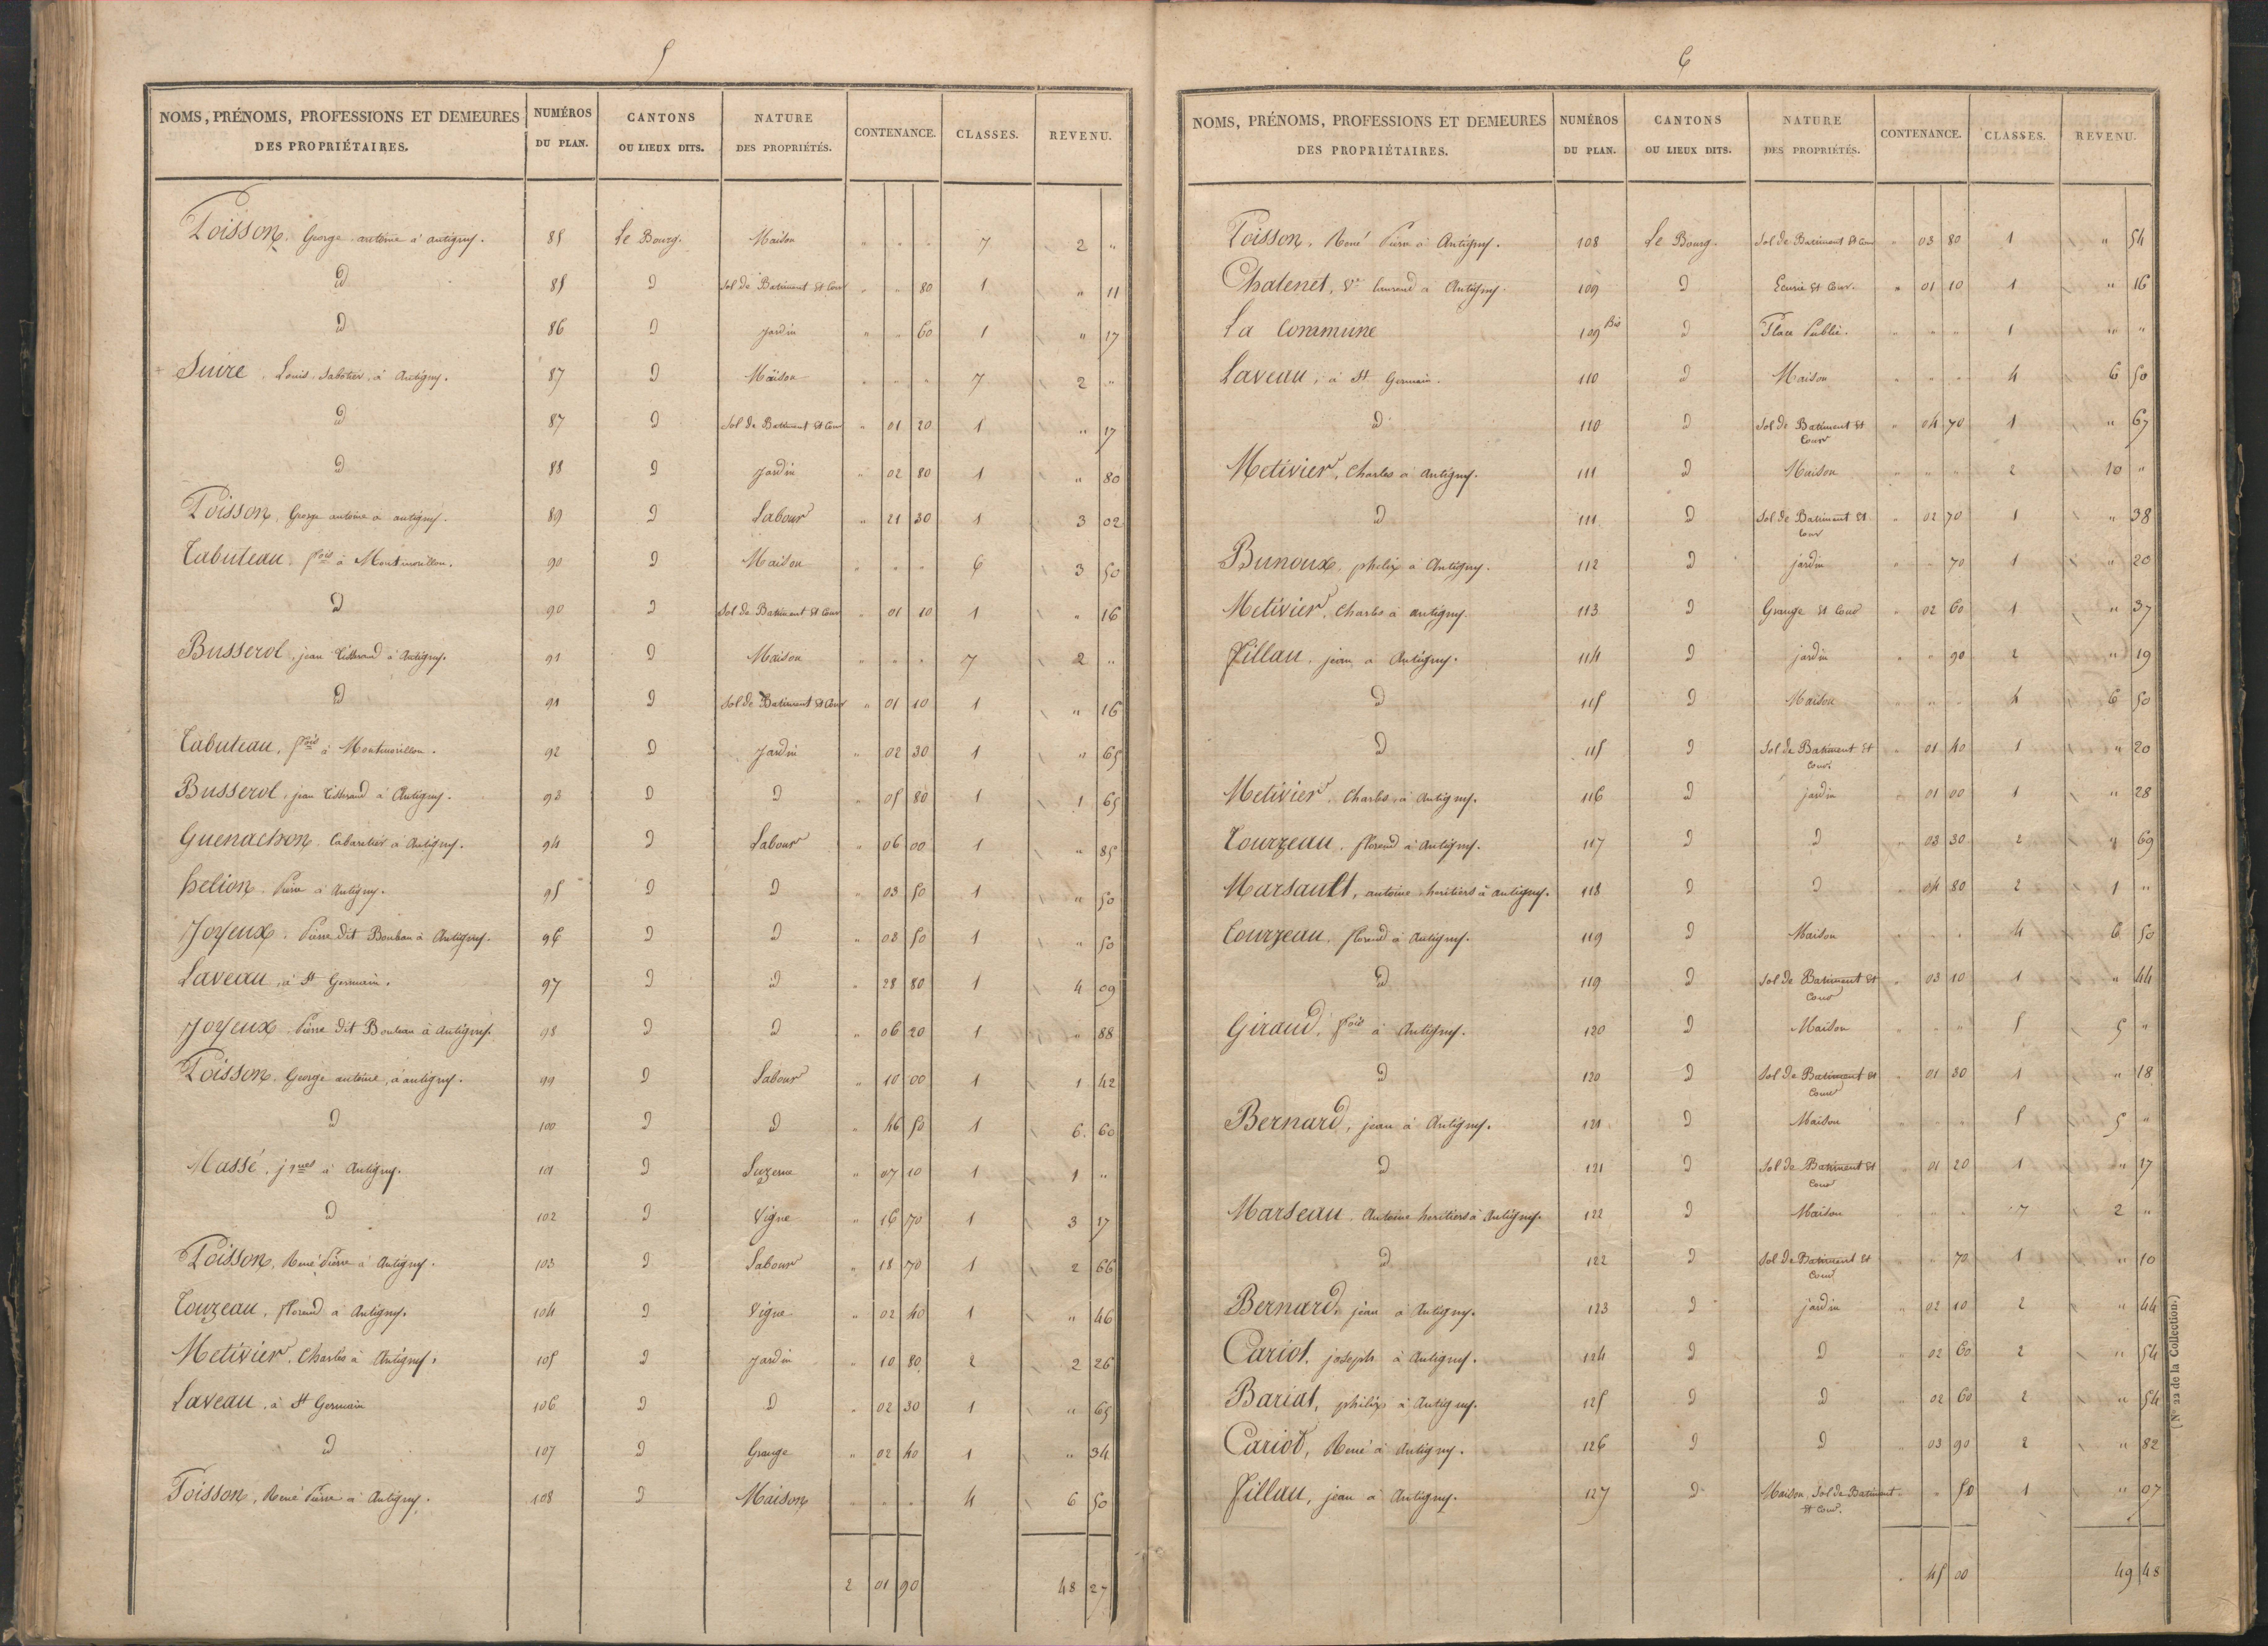 5
NOMS, PRÉNOMS, PROFESSIONS ET DEMEURES DES PROPRIÉTAIRES. NUMÉROS DU PLAN. CANTONS OU LIEUX DITS. NATURE DES PROPRIÉTÉS. CONTENANCE. CLASSES. REVENU.
Poisson, George antoine à antigny. 85 Le Bourg. Maison " " " 7 2 "
D 85 D Sol de Batiment et Cour " " 80 1 " 11
D 86 D Jardin " " 60 1 " 17
Suire, Louis Sabotier, à Antigny. 87 D Maison " " " 7 2 "
D 87 D Sol de Batiment et Cour " 01 20 1 " 17
D 88 D Jardin " 02 80 1 " 80
Poisson, George antoine à antigny. 89 D Labour " 21 30 1 3 02
Tabuteau fois à Montmorillon. 90 D Maison " " " 6 3 50
D 90 D Sol de Batiment et Cour " 01 10 1 " 16
Busserol, jean Tisserand à Antigny. 91 D Maison " " " 7 2 "
D 91 D Sol de Batiment et Cour " 01 10 1 " 16
Tabuteau, fois à Montmorillon. 92 D Jardin " 02 30 1 " 65
Busserol, jean Tisserand à Antigny. 93 D D " 05 80 1 1 65
Guenachon Cabaretier à Antigny. 94 D Labour " 06 00 1 " 85
helion Pierre à Antigny. 95 D D " 03 50 1 " 50
Joyeux, Pierre dit à Antigny. 96 D D " 03 50 1 " 50
Laveau, à St Germain. 97 D D " 28 80 1 4 09
Joyeux Pierre dit à Antigny. 98 D D " 06 20 1 " 88
Poisson, George antoine, à antigny. 99 D Labour " 10 00 1 1 42
D 100 D D " 46 50 1 6 60
Massé, jques à Antigny. 101 D Luzerne " 07 10 1 1 "
D 102 D Vigne " 16 70 1 3 17
Poisson, René Pierre à Antigny. 103 D Labour " 18 70 1 2 66
Touzeau, florend à Antigny. 104 D Vigne " 02 40 1 " 46
Metivier, Charles à Antigny. 105 D Jardin " 10 80 2 2 26
Laveau, à St Germain 106 D D " 02 30 1 " 65
D 107 D Grange " 02 40 1 " 34
Poisson, René Pierre à Antigny. 108 D Maison " " " 4 6 50
2 01 90 48 27
6
NOMS, PRÉNOMS, PROFESSIONS ET DEMEURES DES PROPRIÉTAIRES. NUMÉROS DU PLAN. CANTONS OU LIEUX DITS. NATURE DES PROPRIÉTÉS. CONTENANCE. CLASSES. REVENU.
Poisson, René Pierre à Antigny. 108 Le Bourg. Sol de Batiment et Cour " 03 80 1 " 54
Chatenet, Ve Laurend à Antigny. 109 D Ecurie et Cour. " 01 10 1 " 16
La Commune 109 Bis D Place Public. " " " 1 " "
Laveau, à St Germain. 110 D Maison " " " 4 6 50
D 110 D Sol de Batiment et Cour " 04 70 1 " 67
Metivier, Charles à Antigny. 111 D Maison " " " 2 10 "
D 111 D Sol de Batiment et Cour " 02 70 1 " 38
Bunoux, phelix à Antigny. 112 D jardin " " 70 1 " 20
Metivier, Charles à antigny. 113 D Grange et Cour " 02 60 1 " 37
Fillau, jean à Antigny. 114 D jardin " " 90 2 " 19
D 115 D Maison " " " 4 6 50
D 115 D Sol de Batiment et Cour. " 01 40 1 " 20
Metivier, Charles, à Antigny. 116 D jardin " 01 00 1 " 28
Tourzeau, florend à Antigny. 117 D D " 03 30 2 " 69
Marsault, antoine heritiers à antigny. 118 D D " 04 80 2 1 "
Tourzeau, florend à Antigny. 119 D Maison " " " 4 6 50
D 119 D Sol de Batiment et Cour " 03 10 1 " 44
Giraud, fois à Antigny. 120 D Maison " " " 5 5 "
D 120 D Sol de Batiment et Cour " 01 30 1 " 18
Bernard, jean à Antigny. 121 D Maison " " " 5 5 "
D 121 D Sol de Batiment et Cour " 01 20 1 " 17
Marseau, Antoine heritiers à Antigny. 122 D Maison " " " 7 2 "
D 122 D Sol de Batiment et Cour " " 70 1 " 10
Bernard, jean à Antigny. 123 D jardin " 02 10 2 " 44
Cariot, joseph à Antigny. 124 D D " 02 60 2 " 54
Bariat, philix à Antigny. 125 D D " 02 60 2 " 54
Cariot, René à Antigny. 126 D D " 03 90 2 " 82
Fillau, jean à Antigny. 127 D Maison, Sol de Batiment et Cour. " " 50 1 " 07
" 45 00 49 48
(No 22 de la Collection.)